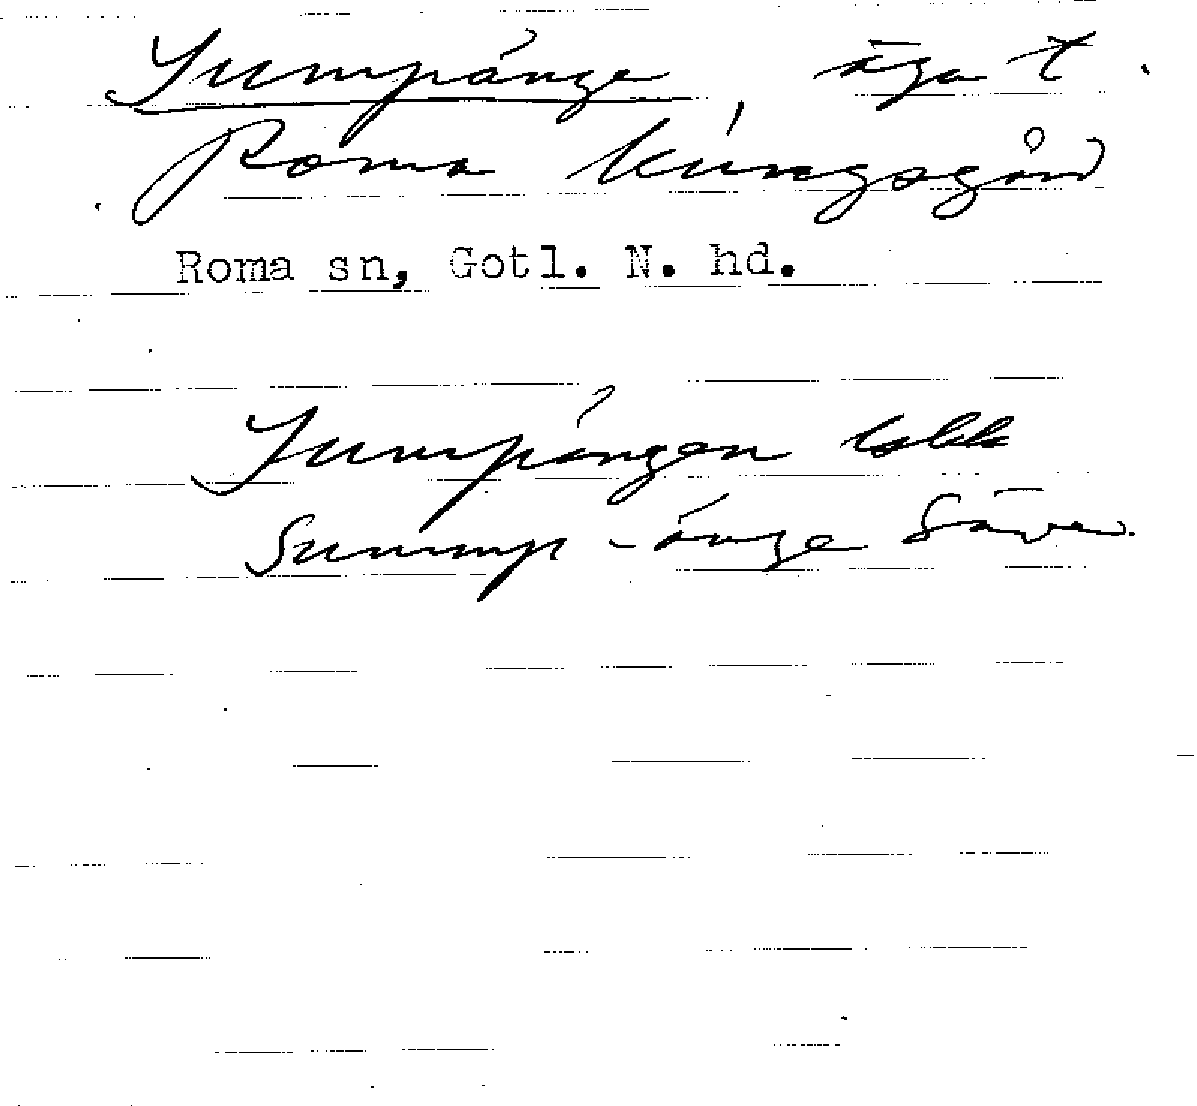 Sumpänge, äga t.
Roma kungsgård
Roma sn, Gotl. N. hd.
Sumpängen
Sump-änge Säve.